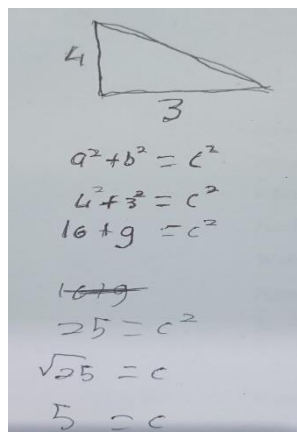 4
3
a² + b² = c²
4² + 3² = c²
16 + 9 = c²
16 + 9
25 = c²
√25 = c
5 = c